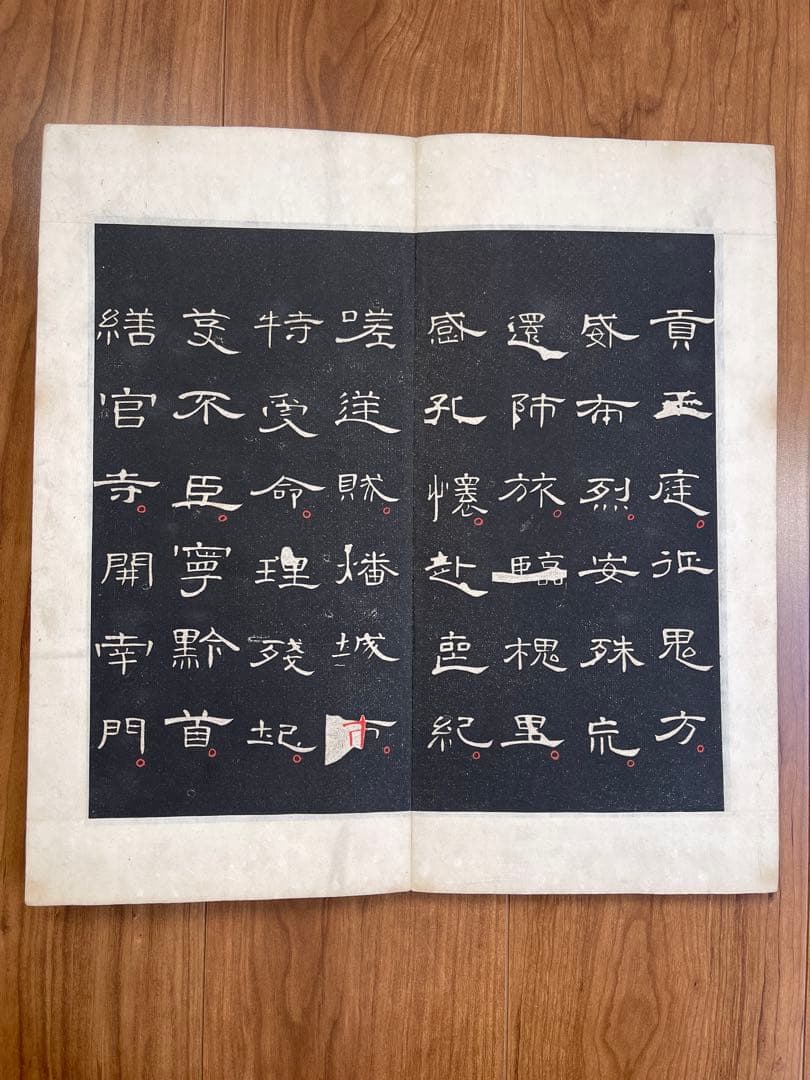 貢王庭征鬼方
威布烈安殊荒
還師旅臨槐里
感孔懷赴喪紀
嗟逆賊燔城市
特受命理殘圮
芟不臣寧黔首
繕官寺開南門